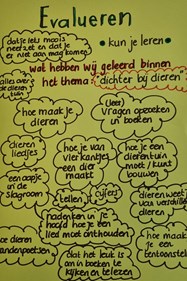 Evalueren
• kun je leren •
dat je iets moois
neerzet en dat je
er niet aan mag komen
wat hebben wij geleerd binnen
het thema: dichter bij dieren
alles over
de dieren
tuin
hoe maak je
dieren
(leer)
vragen opzoeken
in boeken
dieren
liedjes
hoe je van
vierkantjes
een dier
maakt
hoe je een
dierentuin
moet / kunt
bouwen
een aapje
in de
slagroom
tellen
cijfers
dieren weet
van verschillende
dieren
nadenken in je
hoofd hoe je een
lied moet onthouden
hoe dieren
tandenpoetsen
dat het leuk is
om in boeken te
kijken en te lezen
hoe maak
je een
tentoonstelling